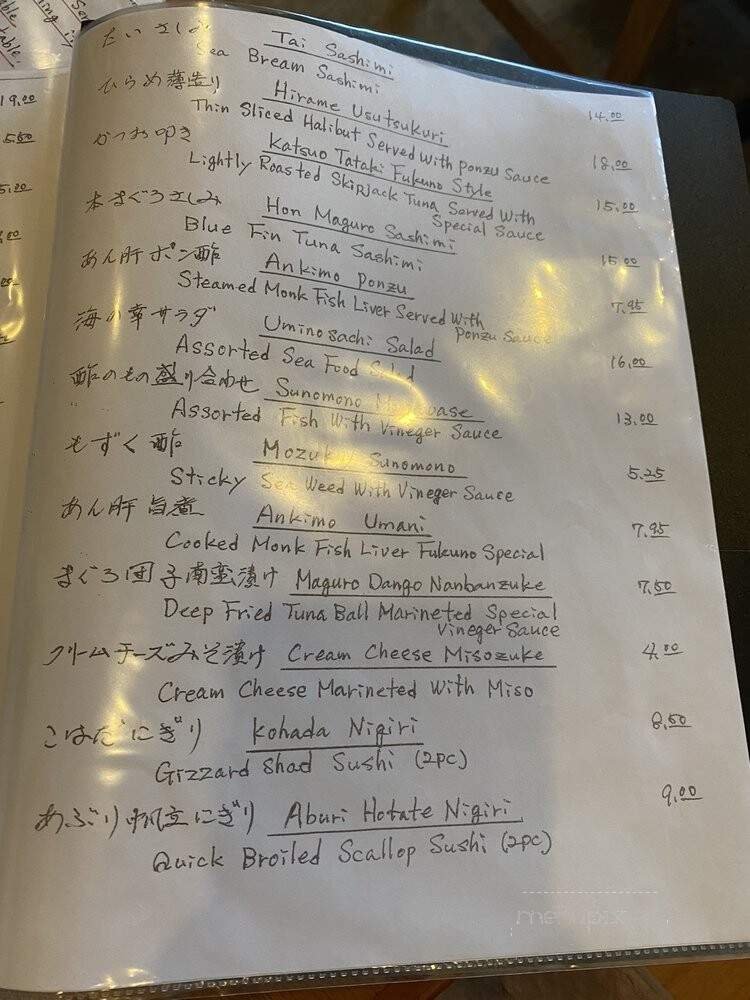 たいさしみ Tai Sashimi
Sea Bream Sashimi
ひらめ薄造り Hirame Usutsukuri 14.00
Thin Sliced Halibut Served With Ponzu Sauce
かつお叩き Katsuo Tataki Fukuno Style 18.00
Lightly Roasted Skipjack Tuna Served With
Special Sauce
本まぐろさしみ Hon Maguro Sashimi 15.00
Blue Fin Tuna Sashimi
あん肝ポン酢 Ankimo Ponzu 15.00
Steamed Monk Fish Liver Served With
Ponzu Sauce
海の幸サラダ Uminosachi Salad 7.95
Assorted Sea Food Salad
酢のもの盛り合わせ Sunomono 16.00
Assorted Fish With Vineger Sauce
もずく酢 Mozuku Sunomono 13.00
Sticky Sea Weed With Vineger Sauce
あん肝旨煮 Ankimo Umani 5.25
Cooked Monk Fish Liver Fukuno Special
まぐろ団子南蛮漬け Maguro Dango Nanbanzuke 7.95
Deep Fried Tuna Ball Marineted Special
Vineger Sauce
7.50
クリームチーズみそ漬け Cream Cheese Misozuke 4.00
Cream Cheese Marineted With Miso
こはだにぎり Kohada Nigiri 8.50
Gizzard Shad Sushi (2pc)
あぶり帆立にぎり Aburi Hotate Nigiri 9.00
Quick Broiled Scallop Sushi (2pc)
19.00
5.50
menupix